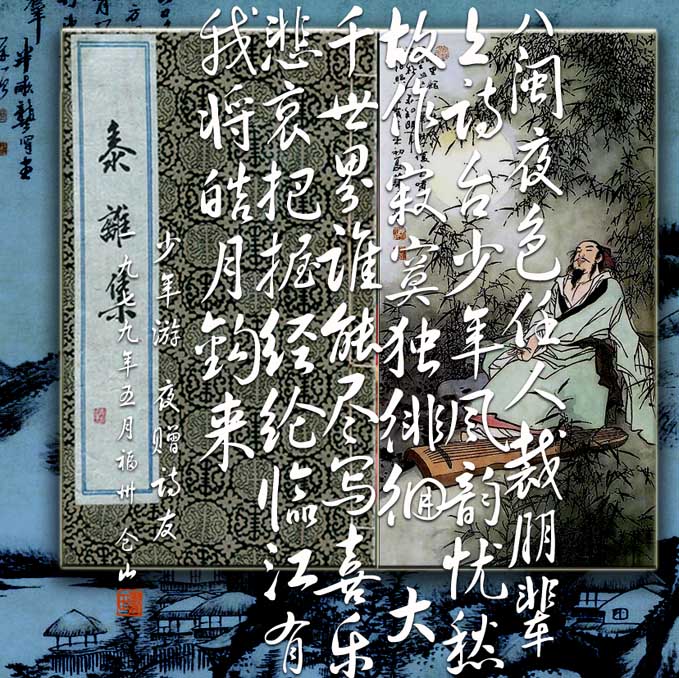 八闽夜色任人裁朋辈
上诗台少年风韵忧愁
故作寂寞独徘徊 大
千世界谁能尽写喜乐
悲哀把握经纶临江有
我将皓月钓来
少年游 夜赠诗友
九七九年五月福州 仓山
黍離集